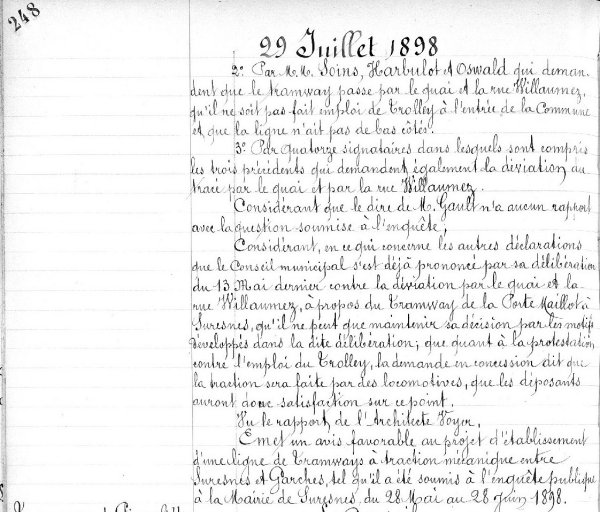 248
29 Juillet 1898
2º Par M.M. Soins, Harbulot et Oswald qui deman-
dent que le tramway passe par le quai et la rue Willaumez,
qu'il ne soit pas fait emploi de Trolley à l'entrée de la Commune
et que la ligne n'ait pas de bas côtés.
3º Par quatorze signataires dans lesquels sont compris
les trois précédents qui demandent également la déviation du
tracé par le quai et par la rue Willaumez.
Considérant que le dire de M. Gault n'a aucun rapport
avec la question soumise à l'enquête;
Considérant, en ce qui concerne les autres déclarations
que le Conseil municipal s'est déjà prononcé par sa délibération
du 13 Mai dernier contre la déviation par le quai et la
rue Willaumez, à propos du Tramway de la Porte Maillot à
Suresnes, qu'il ne peut que maintenir sa décision par les motifs
développés dans la dite délibération; que quant à la protestation
contre l'emploi du Trolley, la demande en concession dit que
la traction sera faite par des locomotives, que les déposants
auront donc satisfaction sur ce point.
Vu le rapport de l'Architecte Voyer,
Emet un avis favorable au projet d'établissement
d'une ligne de Tramways à traction mécanique entre
Suresnes et Garches, tel qu'il a été soumis à l'enquête publique
à la Mairie de Suresnes, du 28 Mai au 28 Juin 1898.